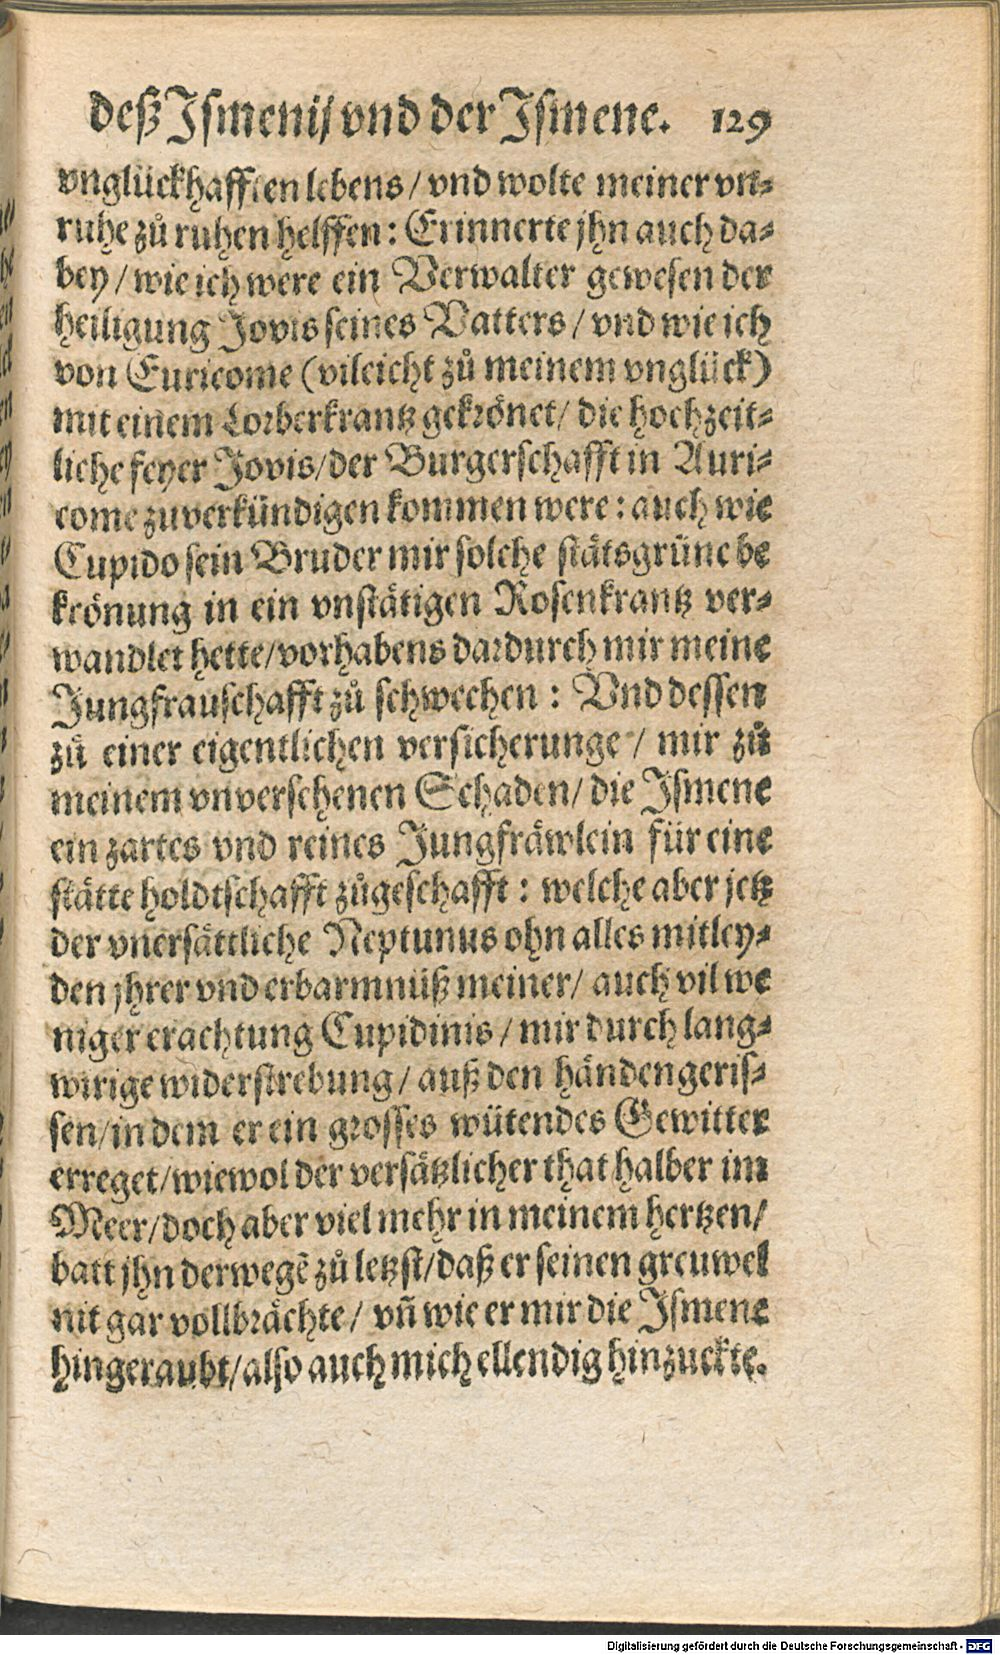 deß Ismenij/ vnd der Ismene. 129
vnglückhafften lebens/ vnd wolte meiner vn-
ruhe zů ruhen helffen: Erinnerte jhn auch da-
bey/ wie ich were ein Verwalter gewesen der
heiligung Jovis seines Vatters/ vnd wie ich
von Euricome (vileicht zů meinem vnglück)
mit einem Lorberkrantz gekrönet/ die hochzeit-
liche feyer Jovis/ der Burgerschafft in Auri-
come zuverkündigen kommen were: auch wie
Cupido sein Bruder mir solche stätsgrüne be
krönung in ein vnstätigen Rosenkrantz ver-
wandlet hette/ vorhabens dardurch mir meine
Jungfrauschafft zů schwechen: Vnd dessen
zů einer eigentlichen versicherunge/ mir zů
meinem vnversehenen Schaden/ die Ismene
ein zartes vnd reines Jungfräwlein für eine
stätte holdtschafft zůgeschafft: welche aber jetz
der vnersättliche Neptunus ohn alles mitley-
den jhrer vnd erbarmnüß meiner/ auch vil we
niger erachtung Cupidinis/ mir durch lang-
wirige widerstrebung/ auß den händen geris-
sen/ in dem er ein grosses wütendes Gewitter
erreget/ wiewol der versätzlicher that halber im
Meer/ doch aber viel mehr in meinem hertzen/
batt jhn derwegẽ zů letzst/ daß er seinen greuwel
nit gar vollbrächte/ vñ wie er mir die Ismene
hingeraubt/ also auch mich ellendig hinzuckte.
Digitalisierung gefördert durch die Deutsche Forschungsgemeinschaft - DFG